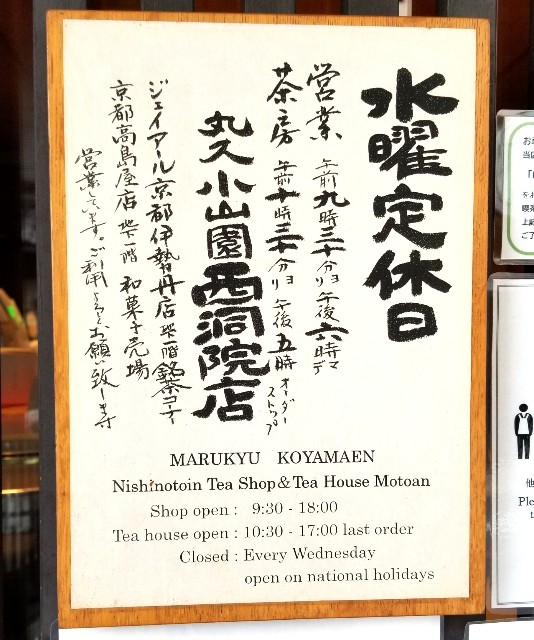 水曜定休日
営業 午前九時三十分ヨリ午後六時マデ
茶房 午前十時三十分ヨリ午後五時オーダーストップ
丸久小山園西洞院店
ジェイアール京都伊勢丹店 地下一階 銘茶コーナー
京都高島屋店 地下一階 和菓子売場
営業しています。ご利用よろしくお願い致します
MARUKYU KOYAMAEN
Nishinotoin Tea Shop & Tea House Motoan
Shop open : 9:30 - 18:00
Tea house open : 10:30 - 17:00 last order
Closed : Every Wednesday
open on national holidays